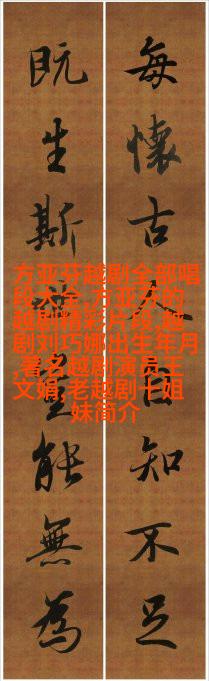 每懷古知不足
既生斯能無為
方亚芬越剧全部唱
段大全,方亚芬的
越剧精彩片段,越
剧刘巧娜出生年月
,著名越剧演员王
文娟,老越剧十姐
妹简介